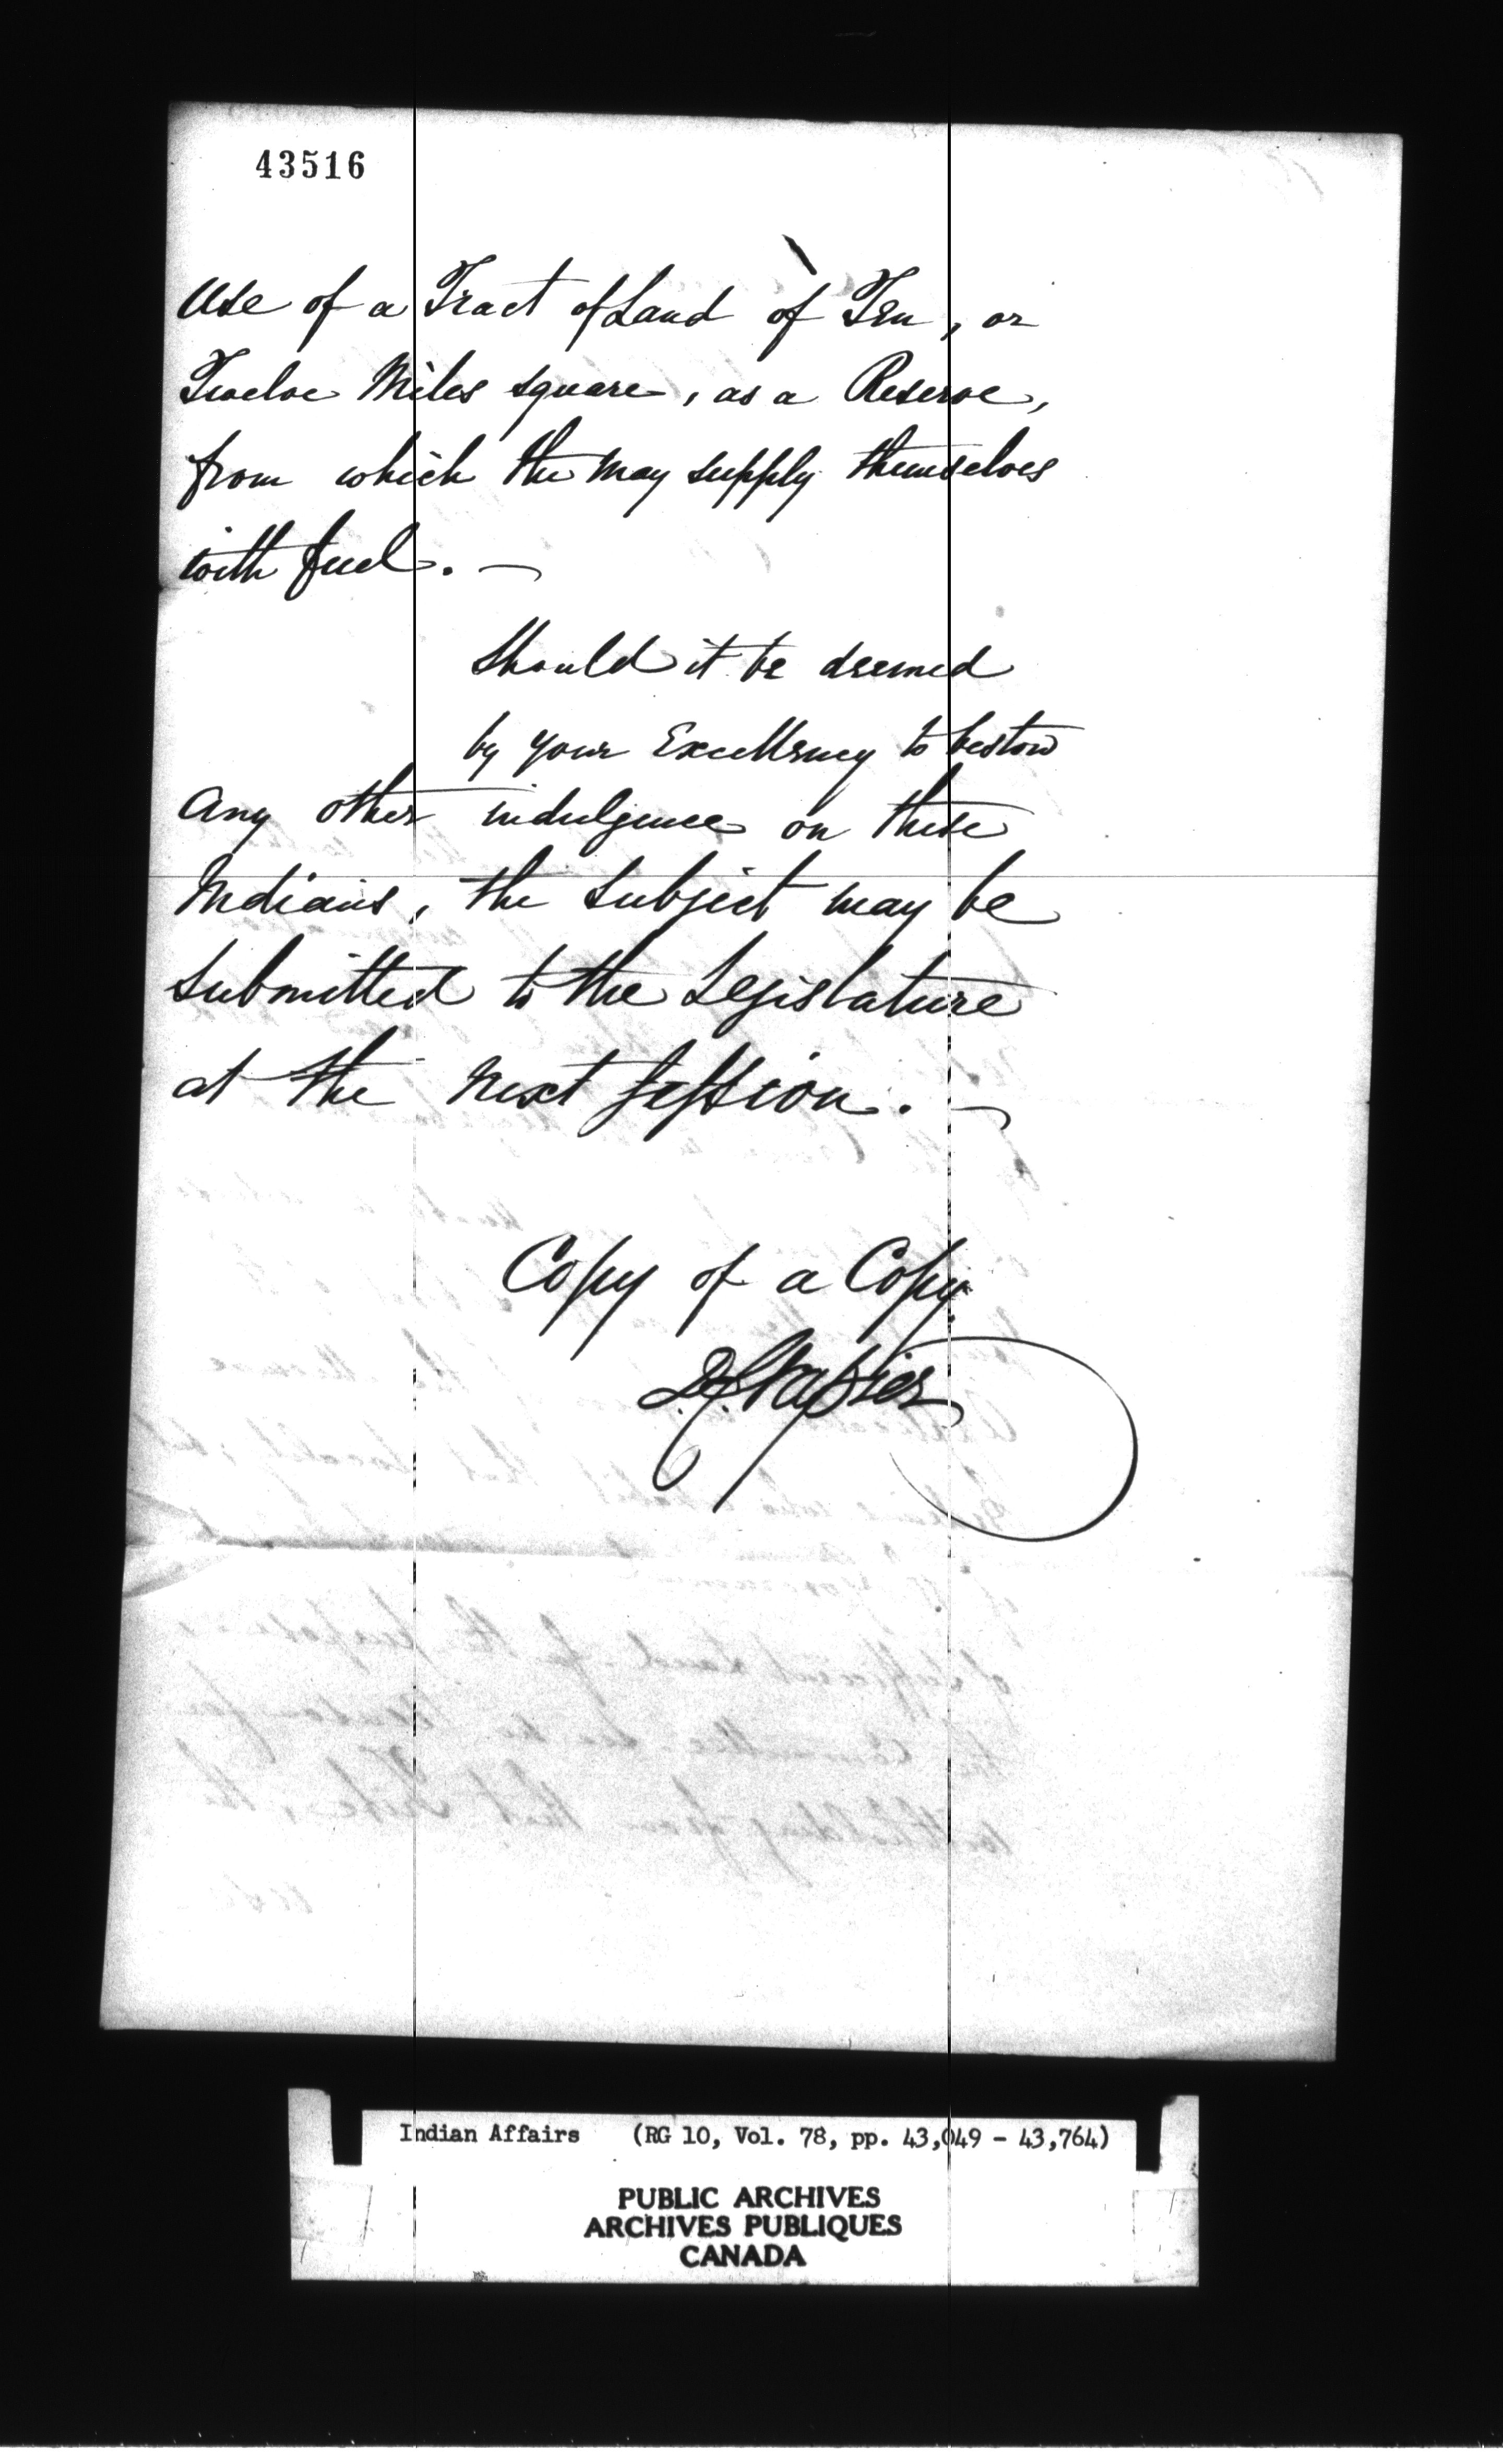 43516
Use of a Tract of Land of Ten, or
Twelve Miles square, as a Reserve,
from which the may supply themselves
with fuel. —
Should it be deemed
by your Excellency to bestow
any other indulgence on these
Indians, the subject may be
submitted to the Legislature
at the next Session. —
Copy of a Copy.
D.C. Napier
Indian Affairs (RG 10, Vol. 78, pp. 43,049 - 43,764)
PUBLIC ARCHIVES
ARCHIVES PUBLIQUES
CANADA